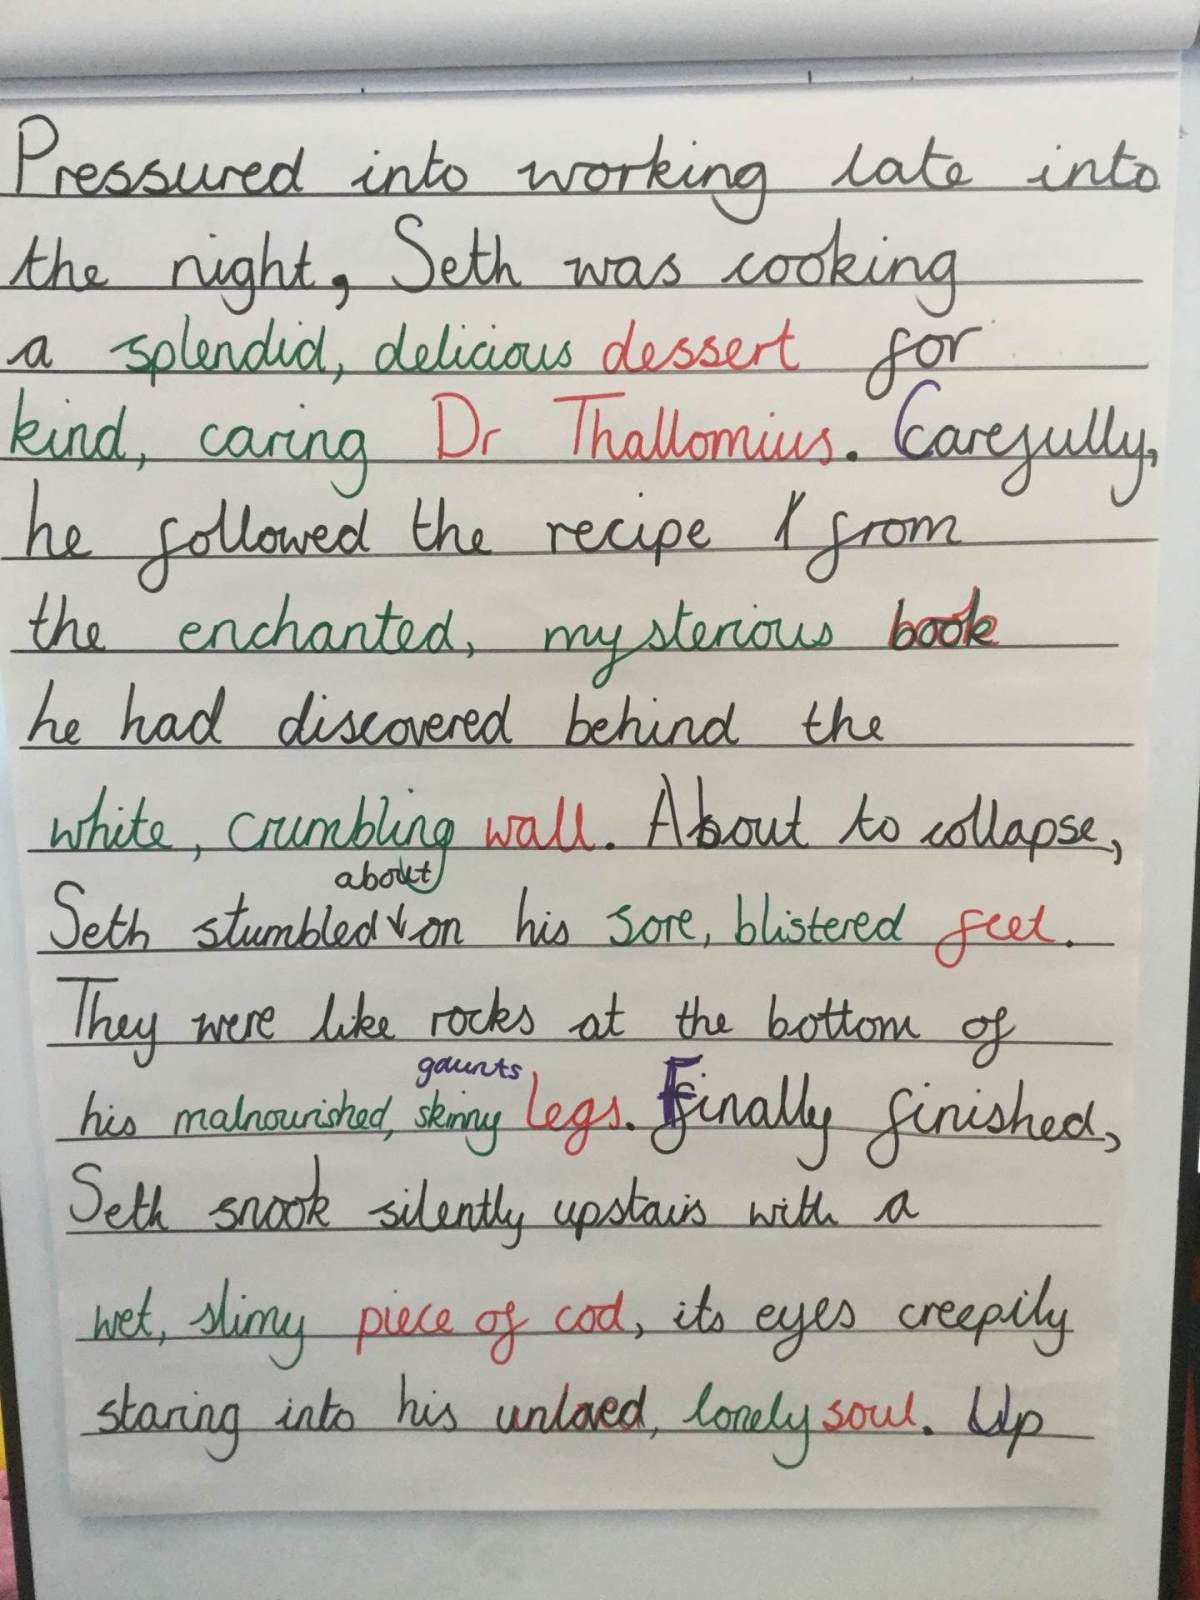 Pressured into working late into
the night, Seth was cooking
a splendid, delicious dessert for
kind, caring Dr Thallomius. Carefully,
he followed the recipe from
the enchanted, mysterious book
he had discovered behind the
white, crumbling wall. About to collapse,
about
Seth stumbled on his sore, blistered feet.
They were like rocks at the bottom of
gaunts
his malnourished, skinny legs. Finally finished,
Seth snook silently upstairs with a
wet, slimy piece of cod, its eyes creepily
staring into his unloved, lonely soul. Up